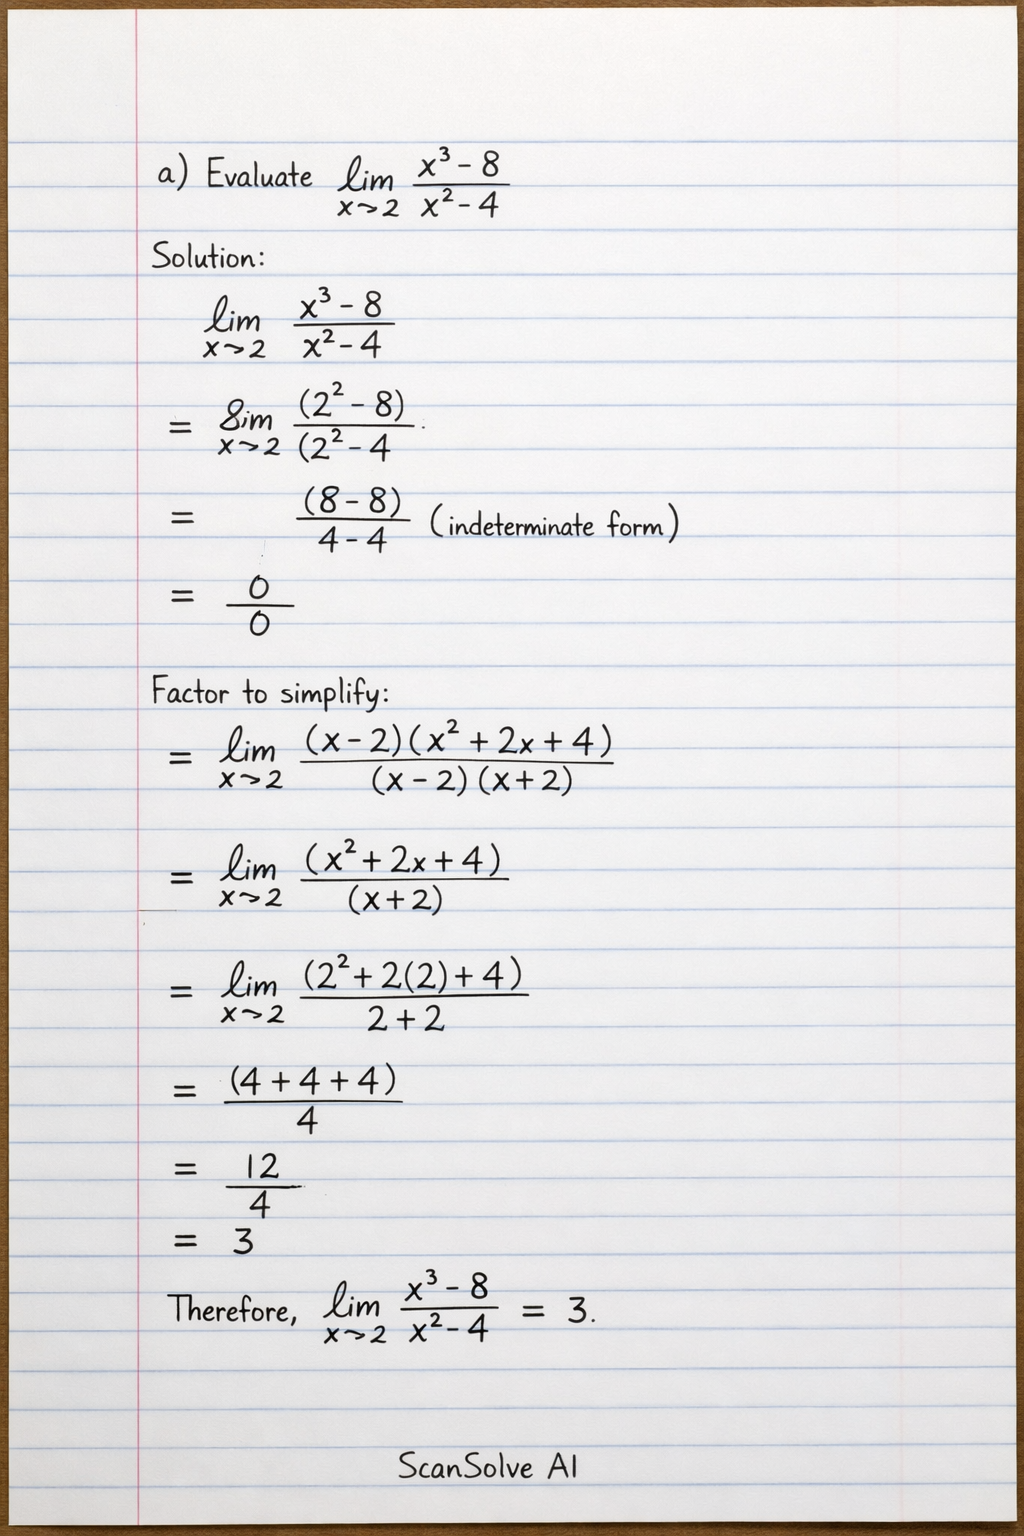 a) Evaluate lim x→2 (x³ - 8)/(x² - 4)
Solution:
lim x→2 (x³ - 8)/(x² - 4)
= 8im x→2 (2² - 8)/(2² - 4
= (8 - 8)/(4 - 4) (indeterminate form)
= 0/0
Factor to simplify:
= lim x→2 (x - 2)(x² + 2x + 4)/(x - 2)(x + 2)
= lim x→2 (x² + 2x + 4)/(x + 2)
= lim x→2 (2² + 2(2) + 4)/2 + 2
= (4 + 4 + 4)/4
= 12/4
= 3
Therefore, lim x→2 (x³ - 8)/(x² - 4) = 3.
ScanSolve AI